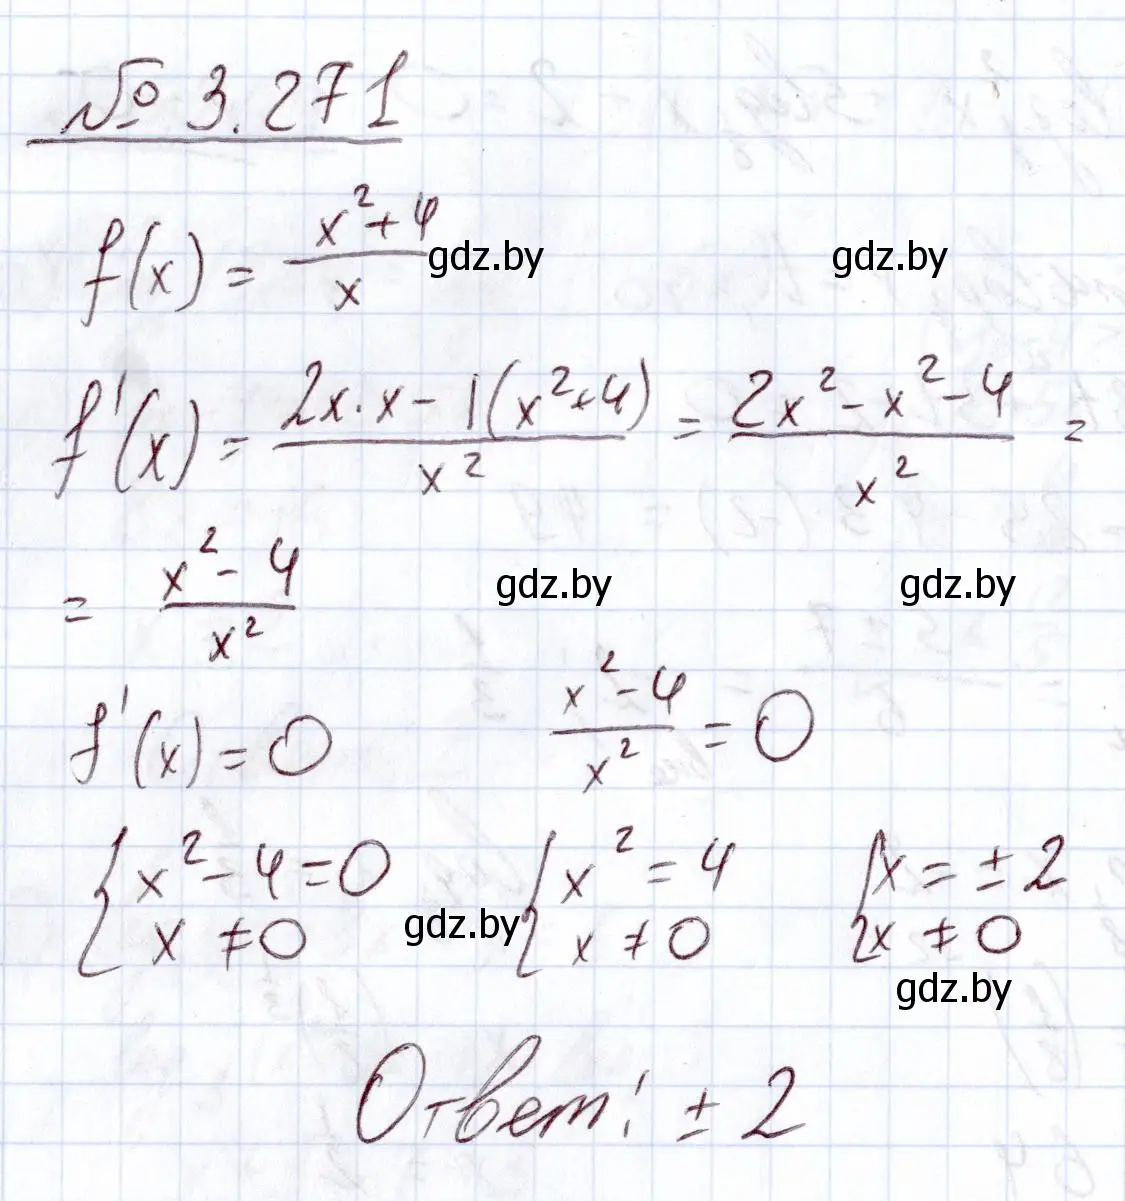 № 3.271
f(x) = (x² + 4) / x
gdz.by gdz.by
f'(x) = (2x·x − 1(x² + 4)) / x² = (2x² − x² − 4) / x² =
= (x² − 4) / x²
gdz.by gdz.by
f'(x) = 0 (x² − 4) / x² = 0
{ x² − 4 = 0 { x² = 4 { x = ± 2
x ≠ 0 x ≠ 0 x ≠ 0
gdz.by
gdz.by
Ответ: ± 2